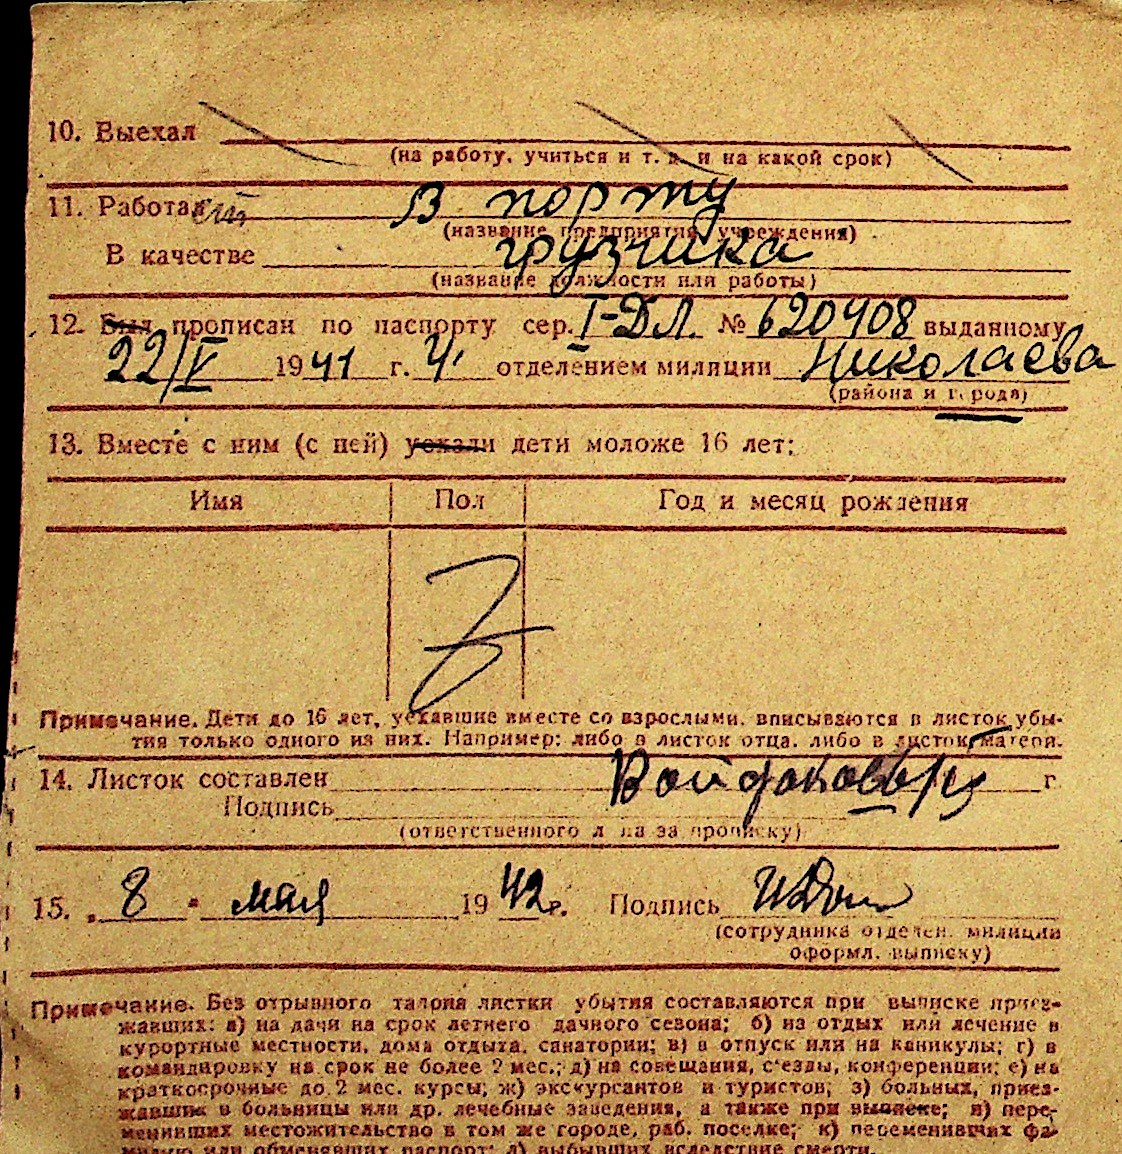 10. Выехал
(на работу, учиться и т. д. и на какой срок)
11. Работа В порту
(название предприятия, учреждения)
В качестве грузчика
(название должности или работы)
12. Был прописан по паспорту сер. I-ДЛ № 620408 выданному
22/V 1941 г. 4 отделением милиции Николаева
(района и города)
13. Вместе с ним (с ней) уехали дети моложе 16 лет:
Имя Пол Год и месяц рождения
Примечание. Дети до 16 лет, уехавшие вместе со взрослыми, вписываются в листок убы-
тия только одного из них. Например: либо в листок отца, либо в листок матери.
14. Листок составлен г
Подпись
(ответственного лица за прописку)
15. „ 8 " мая 1942 г. Подпись
(сотрудника отделен. милиции
оформл. выписку)
Примечание. Без отрывного талона листки убытия составляются при выписке приез-
жавших: а) на дачи на срок летнего дачного сезона; б) на отдых или лечение в
курортные местности, дома отдыха, санатории; в) в отпуск или на каникулы; г) в
командировку на срок не более 2 мес.; д) на совещания, съезды, конференции; е) на
краткосрочные до 2 мес. курсы; ж) экскурсантов и туристов; з) больных, приез-
жавших в больницы или др. лечебные заведения, а также при выписке; и) пере-
менивших местожительство в том же городе, раб. поселке; к) переменивших фа-
милию или обменявших паспорт; л) выбывших вследствие смерти.